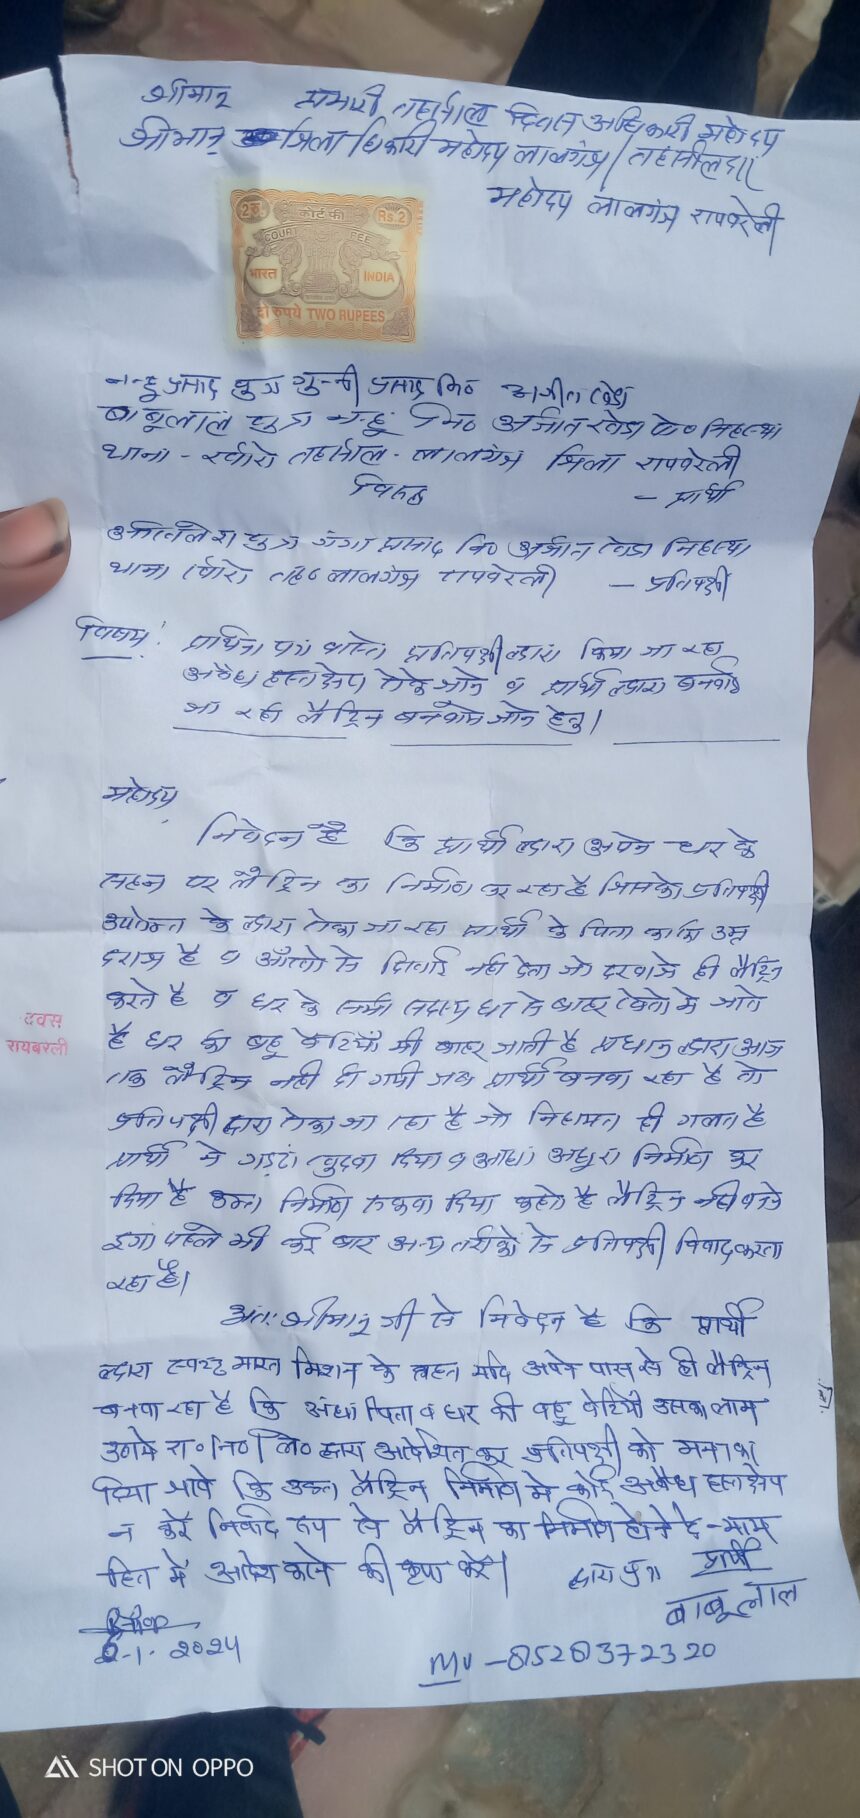 श्रीमान प्रभारी तहसील दिवस अधिकारी महोदय
श्रीमान् जिलाधिकारी महोदय लालगंज / तहसीलदार
महोदय लालगंज रायबरेली
2रु. कोर्ट फी Rs.2
COURT FEE
भारत INDIA
दो रुपये TWO RUPEES
नन्हू प्रसाद पुत्र प्रसाद नि०
बाबूलाल पुत्र नन्हू नि० अजीत खेडा पो० निहस्था
थाना - खीरों तहसील - लालगंज जिला रायबरेली
विरुद्ध — प्रार्थी
पुत्र गंगा प्रसाद नि० अजीत खेडा निहस्था
थाना खीरों तह० लालगंज रायबरेली — प्रतिपक्षी
विषय: प्रार्थना पत्र वास्ते प्रतिपक्षी द्वारा किया जा रहा
अवैध हस्तक्षेप रोके जाने व प्रार्थी द्वारा बनवाई
जा रही लैट्रिन बनवाये जाने हेतु।
महोदय,
निवेदन है कि प्रार्थी द्वारा अपने घर के
सहन पर लैट्रिन का निर्माण कर रहा है जिसको प्रतिपक्षी
उपरोक्त के द्वारा रोका जा रहा प्रार्थी के पिता काफी उम्र
दराज है व आँखो से दिखाई नही देता जो दरवाजे ही लैट्रिन
करते है व घर के सभी सदस्य घर से बाहर खेतो मे जाते
है घर की बहू बेटियाँ भी बाहर जाती है प्रधान द्वारा आज
तक लैट्रिन नही दी गयी जब प्रार्थी बनवा रहा है तो
प्रतिपक्षी द्वारा रोका जा रहा है जो निहायत ही गलत है
प्रार्थी ने गड्ढा खुदवा दिया व आधा अधुरा निर्माण कर
दिया है उक्त निर्माण रुकवा दिया कहते है लैट्रिन नही बनने
दूंगा पहले भी कई बार अन्य तरीको से प्रतिपक्षी विवाद करता
रहा है।
अतः श्रीमान् जी से निवेदन है कि प्रार्थी
द्वारा स्वच्छ भारत मिशन के तहत यदि अपने पास से ही लैट्रिन
बनवा रहा है कि अंधा पिता व घर की बहू बेटियाँ उसका लाभ
उठाये रा०नि०/ले० द्वारा आदेशित कर प्रतिपक्षी को मना का
दिया जाये कि उक्त लैट्रिन निर्माण मे कोई अवैध हस्तक्षेप
न करें निर्विवाद रूप से लैट्रिन का निर्माण होने दे न्याय
हित में आदेश करने की कृपा करें।
प्रार्थी
बाबूलाल
-1-2024
Mo - 8528372320
दिवस
रायबरेली
SHOT ON OPPO